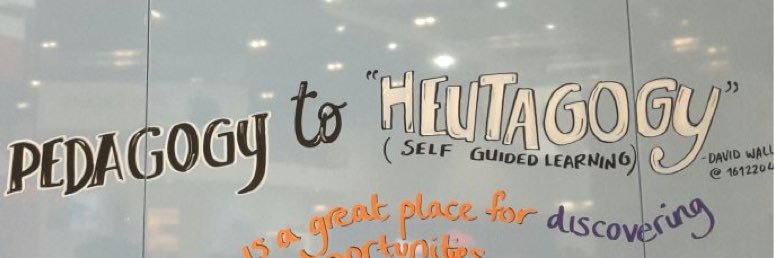 PEDAGOGY to "HEUTAGOGY"
(SELF GUIDED LEARNING)
- DAVID WALL
@ 1612204
is a great place for discovering
opportunities